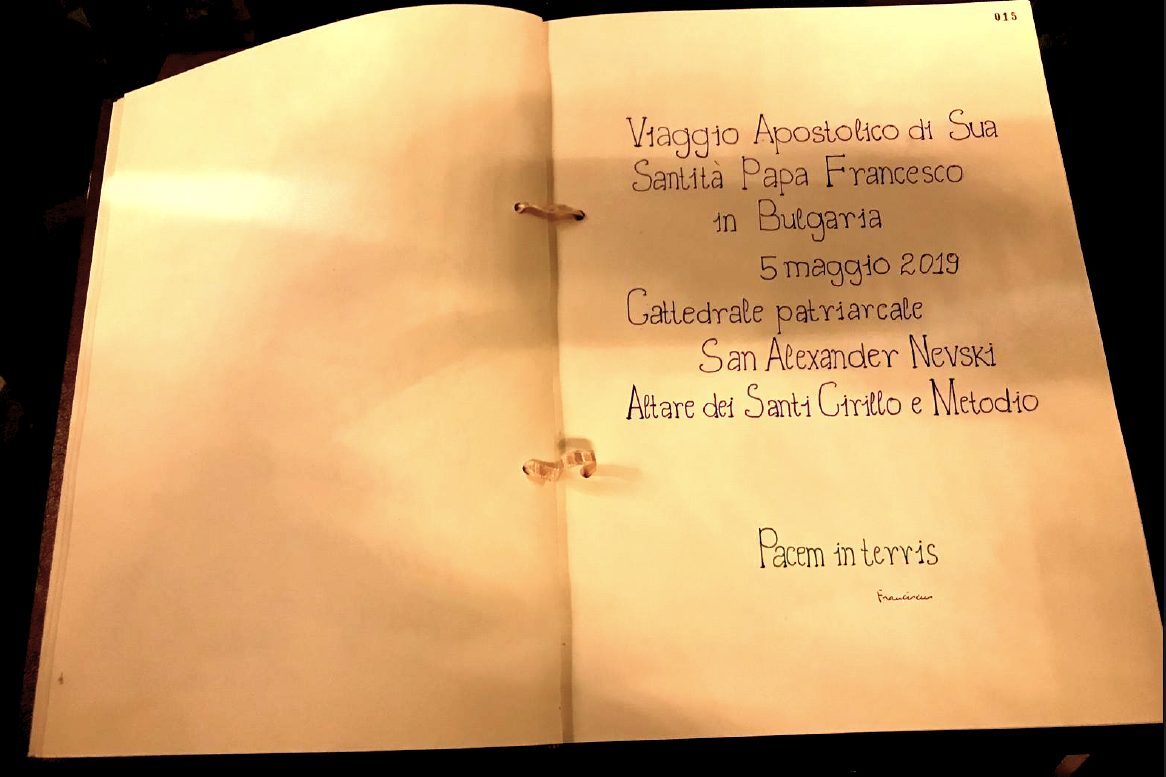 015
Viaggio Apostolico di Sua
Santità Papa Francesco
in Bulgaria
5 maggio 2019
Cattedrale patriarcale
San Alexander Nevski
Altare dei Santi Cirillo e Metodio
Pacem in terris
Franciscus